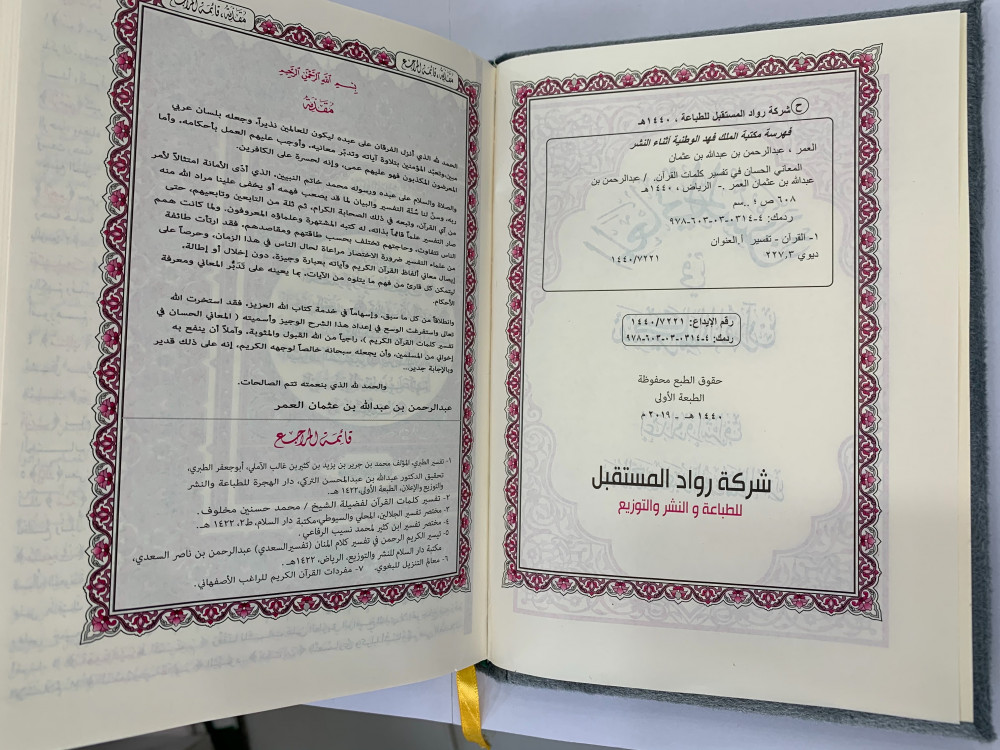 ح شركة رواد المستقبل للطباعة ، ١٤٤٠هـ
فهرسة مكتبة الملك فهد الوطنية أثناء النشر
العمر ، عبدالرحمن بن عبدالله بن عثمان
المعاني الحسان في تفسير كلمات القرآن. / عبدالرحمن بن
عبدالله بن عثمان العمر .- الرياض ، ١٤٤٠هـ
٦٠٨ ص ؛ ..سم
ردمك: ٤-٠٣١٤-٠٣-٦٠٣-٩٧٨
١- القرآن - تفسير أ.العنوان
ديوي ٢٢٧,٣ ١٤٤٠/٧٢٢١
رقم الإيداع: ١٤٤٠/٧٢٢١
ردمك: ٤-٠٣١٤-٠٣-٦٠٣-٩٧٨
حقوق الطبع محفوظة
الطبعة الأولى
١٤٤٠ هـ - ٢٠١٩ م
شركة رواد المستقبل
للطباعة و النشر والتوزيع
مقدمة، قائمة المراجع
مقدمة، قائمة المراجع
بسم الله الرحمن الرحيم
مقدمة
الحمد لله الذي أنزل الفرقان على عبده ليكون للعالمين نذيراً، وجعله بلسان عربي
مبين،وتعبّد المؤمنين بتلاوة آياته وتدبُّر معانيه، وأوجب عليهم العمل بأحكامه، وأما
المعرضون المكذبون فهو عليهم عمى، وإنه لحسرة على الكافرين.
والصلاة والسلام على عبده ورسوله محمد خاتم النبيين، الذي أدّى الأمانة امتثالاً لأمر
ربه، وسنّ لنا سُنّة التفسير والبيان لما قد يصعب فهمه أو يخفى علينا مراد الله منه
من آي القرآن، وتبعه في ذلك الصحابة الكرام، ثم ثلة من التابعين وتابعيهم، حتى
صار التفسير علماً قائماً بذاته، له كتبه المشتهرة وعلماؤه المعروفون. ولما كانت همم
الناس تتفاوت، وحاجتهم تختلف بحسب طاقتهم ومقاصدهم، فقد ارتأت طائفة
من علماء التفسير ضرورة الاختصار مراعاة لحال الناس في هذا الزمان، وحرصاً على
إيصال معاني ألفاظ القرآن الكريم وآياته بعبارة وجيزة، دون إخلال أو إطالة،
ليتمكن كل قارئ من فهم ما يتلوه من الآيات، بما يعينه على تدَبُّر المعاني ومعرفة
الأحكام.
وانطلاقاً من كل ما سبق، وإسهاماً في خدمة كتاب الله العزيز، فقد استخرت الله
تعالى واستفرغت الوسع في إعداد هذا الشرح الوجيز وأسميته ( المعاني الحسان في
تفسير كلمات القرآن الكريم )، راجياً من الله القبول والمثوبة، وآملاً أن ينفع به
إخواني من المسلمين، وأن يجعله سبحانه خالصاً لوجهه الكريم، إنه على ذلك قدير
وبالإجابة جدير...
والحمد لله الذي بنعمته تتم الصالحات.
عبدالرحمن بن عبدالله بن عثمان العمر
قائمة المراجع
١- تفسير الطبري، المؤلف محمد بن جرير بن يزيد بن كثير بن غالب الآملي، أبوجعفر الطبري،
تحقيق الدكتور عبدالله بن عبدالمحسن التركي، دار الهجرة للطباعة والنشر
والتوزيع والإعلان، الطبعة الأولى،١٤٢٢هـ.
٢- تفسير كلمات القرآن لفضيلة الشيخ / محمد حسنين مخلوف.
٣- مختصر تفسير الجلالين، المحلي والسيوطي،مكتبة دار السلام، ط٢، ١٤٢٢ هـ.
٤- مختصر تفسير ابن كثير لمحمد نسيب الرفاعي.
٥- تيسير الكريم الرحمن في تفسير كلام المنان (تفسيرالسعدي) عبدالرحمن بن ناصر السعدي،
مكتبة دار السلام للنشر والتوزيع، الرياض، ١٤٢٢هـ.
٦- معالم التنزيل للبغوي. ٧- مفردات القرآن الكريم للراغب الأصفهاني.